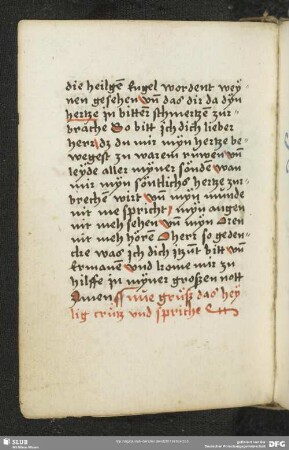 die heilgē Engel wordent wey
nen gesehen vn̄ das dir da dyn
hertze in bittē schmertzen zur
brache So bitt ich dich lieber
herr dz du mir myn hertze be
wegest zu warem ruwen vn̄
leyde aller myner sönde wan
mir myn söntlichs hertze zur
brechen wirt vn̄ myn munde
nit me spricht myn augen
nit meh sehen vn̄ myn oren
nit meh hören O herr so geden
cke was ich dich itzūt bitt vn̄
ermanen vnd kome mir zu
hilffe in myner groszen nott
Amen nue grüsz das hey
lig crütz vnd spriche
SLUB
DFG